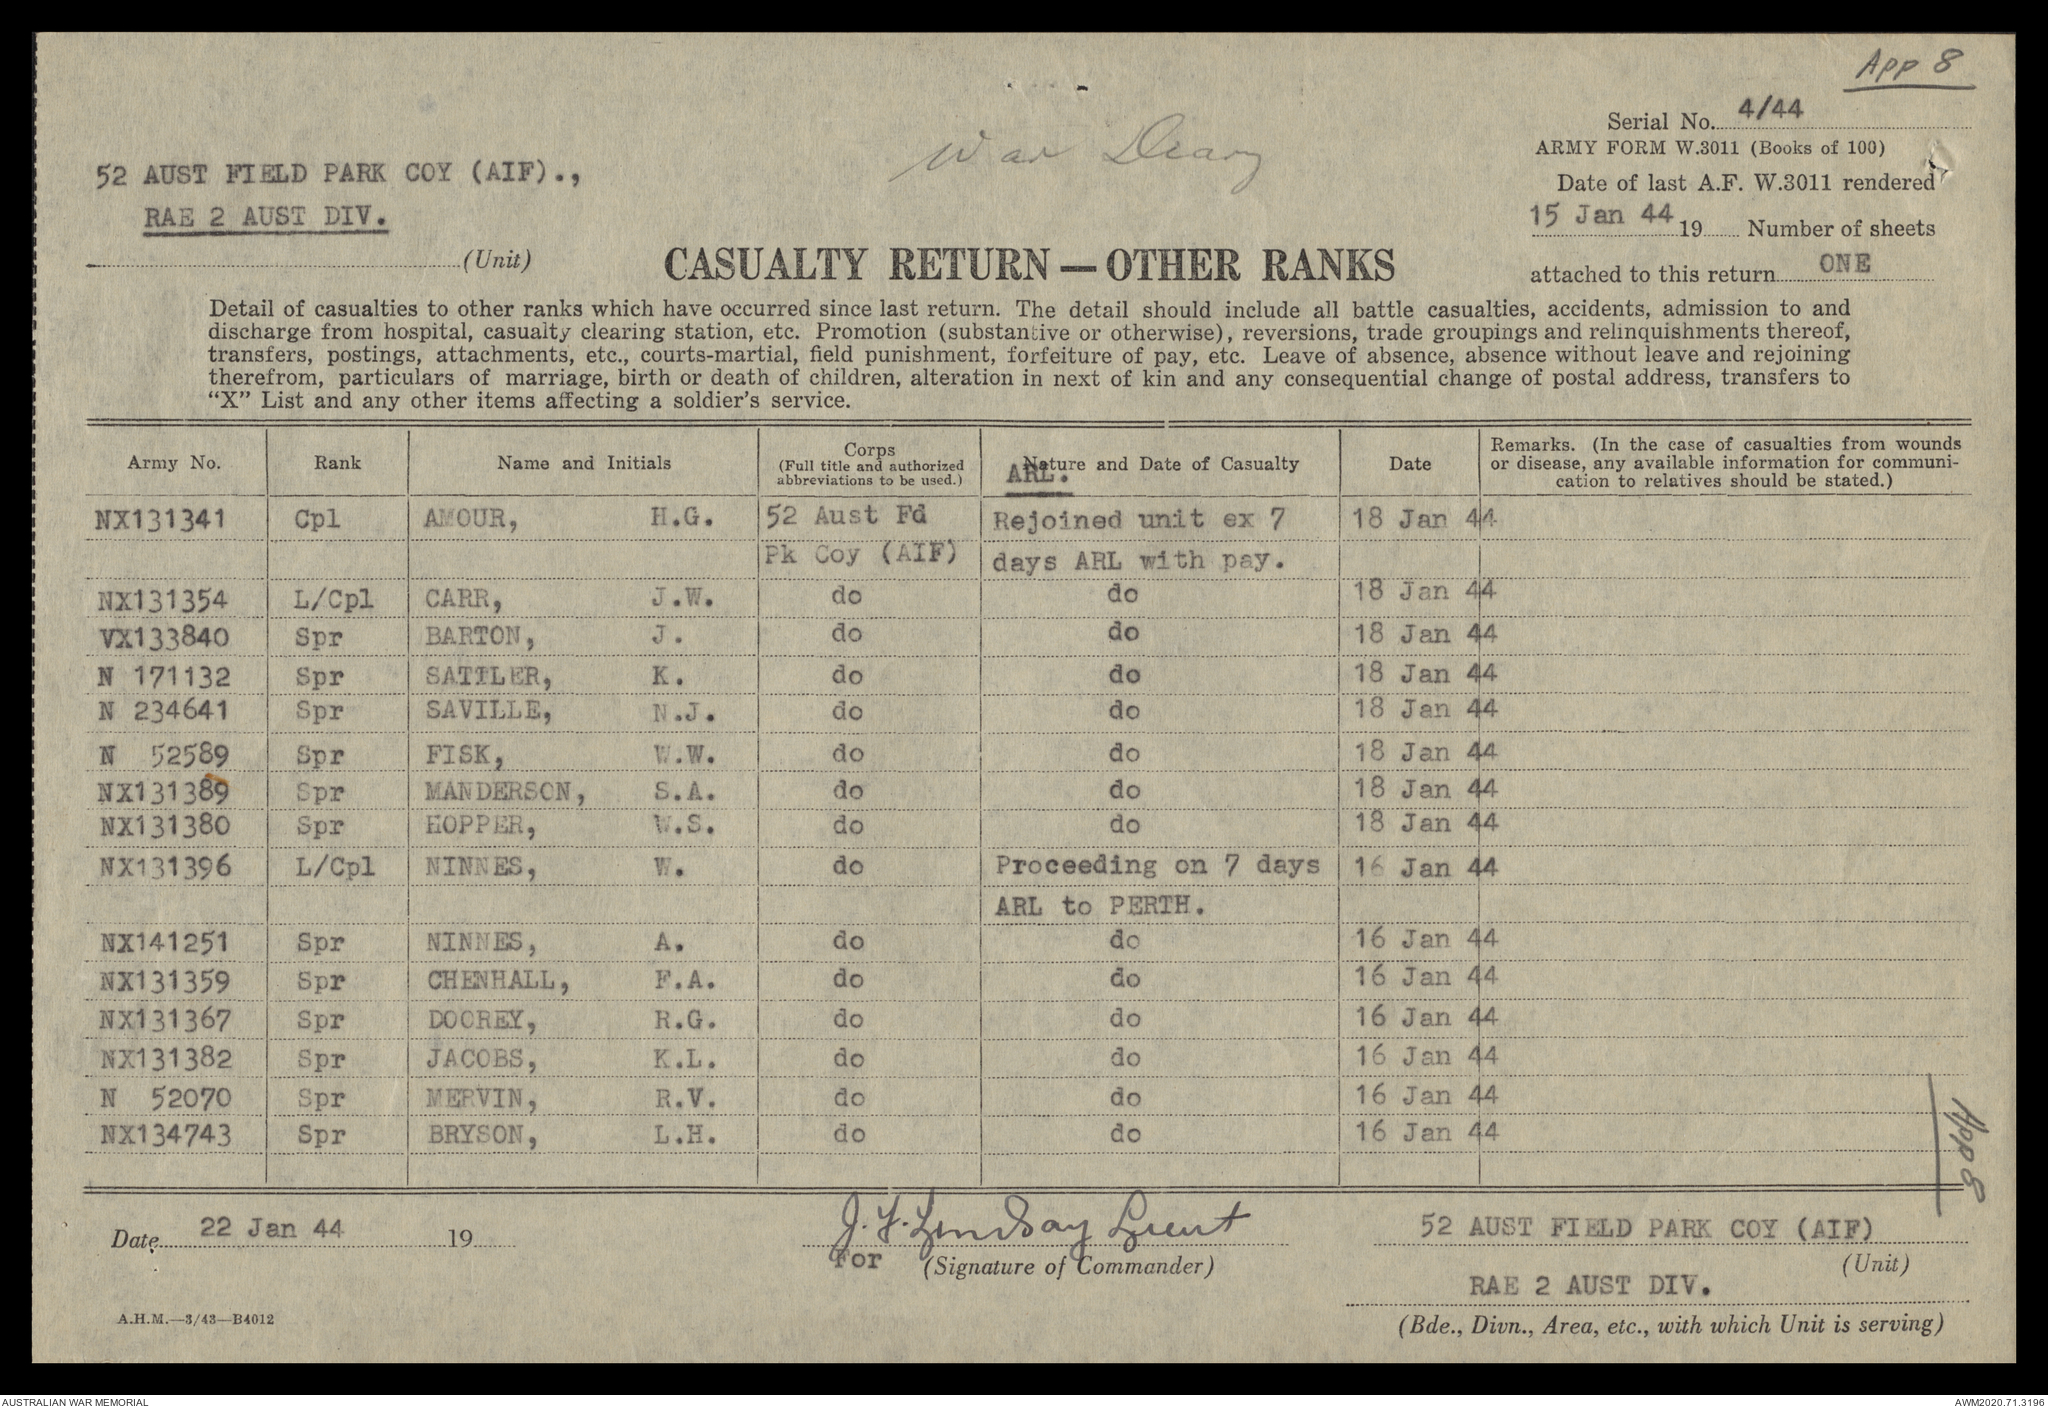 App 8
Serial No. 4/44
ARMY FORM W.3011 (Books of 100)
War Diary
52 AUST FIELD PARK COY (AIF).,
Date of last A.F. W.3011 rendered
RAE 2 AUST DIV.
15 Jan 44 19 Number of sheets
(Unit)
CASUALTY RETURN — OTHER RANKS
attached to this return ONE
Detail of casualties to other ranks which have occurred since last return. The detail should include all battle casualties, accidents, admission to and
discharge from hospital, casualty clearing station, etc. Promotion (substantive or otherwise), reversions, trade groupings and relinquishments thereof,
transfers, postings, attachments, etc., courts-martial, field punishment, forfeiture of pay, etc. Leave of absence, absence without leave and rejoining
therefrom, particulars of marriage, birth or death of children, alteration in next of kin and any consequential change of postal address, transfers to
“X” List and any other items affecting a soldier’s service.
Army No. Rank Name and Initials Corps (Full title and authorized abbreviations to be used.) Nature and Date of Casualty Date Remarks. (In the case of casualties from wounds or disease, any available information for communi-cation to relatives should be stated.)
ARL.
NX131341 Cpl AMOUR, H.G. 52 Aust Fd Rejoined unit ex 7 18 Jan 44
Pk Coy (AIF) days ARL with pay.
NX131354 L/Cpl CARR, J.W. do do 18 Jan 44
VX133840 Spr BARTON, J. do do 18 Jan 44
N 171132 Spr SATTLER, K. do do 18 Jan 44
N 234641 Spr SAVILLE, N.J. do do 18 Jan 44
N 52589 Spr FISK, W.W. do do 18 Jan 44
NX131389 Spr MANDERSON, S.A. do do 18 Jan 44
NX131380 Spr HOPPER, W.S. do do 18 Jan 44
NX131396 L/Cpl NINNES, W. do Proceeding on 7 days 16 Jan 44
ARL to PERTH.
NX141251 Spr NINNES, A. do do 16 Jan 44
NX131359 Spr CHENHALL, F.A. do do 16 Jan 44
NX131367 Spr DOOREY, R.G. do do 16 Jan 44
NX131382 Spr JACOBS, K.L. do do 16 Jan 44
N 52070 Spr MERVIN, R.V. do do 16 Jan 44
NX134743 Spr BRYSON, L.H. do do 16 Jan 44
App 8
Date 22 Jan 44 19
J. F. Lindsay Lieut
For (Signature of Commander)
52 AUST FIELD PARK COY (AIF)
(Unit)
RAE 2 AUST DIV.
A.H.M.—3/43—B4012
(Bde., Divn., Area, etc., with which Unit is serving)
AUSTRALIAN WAR MEMORIAL
AWM2020.71.3196